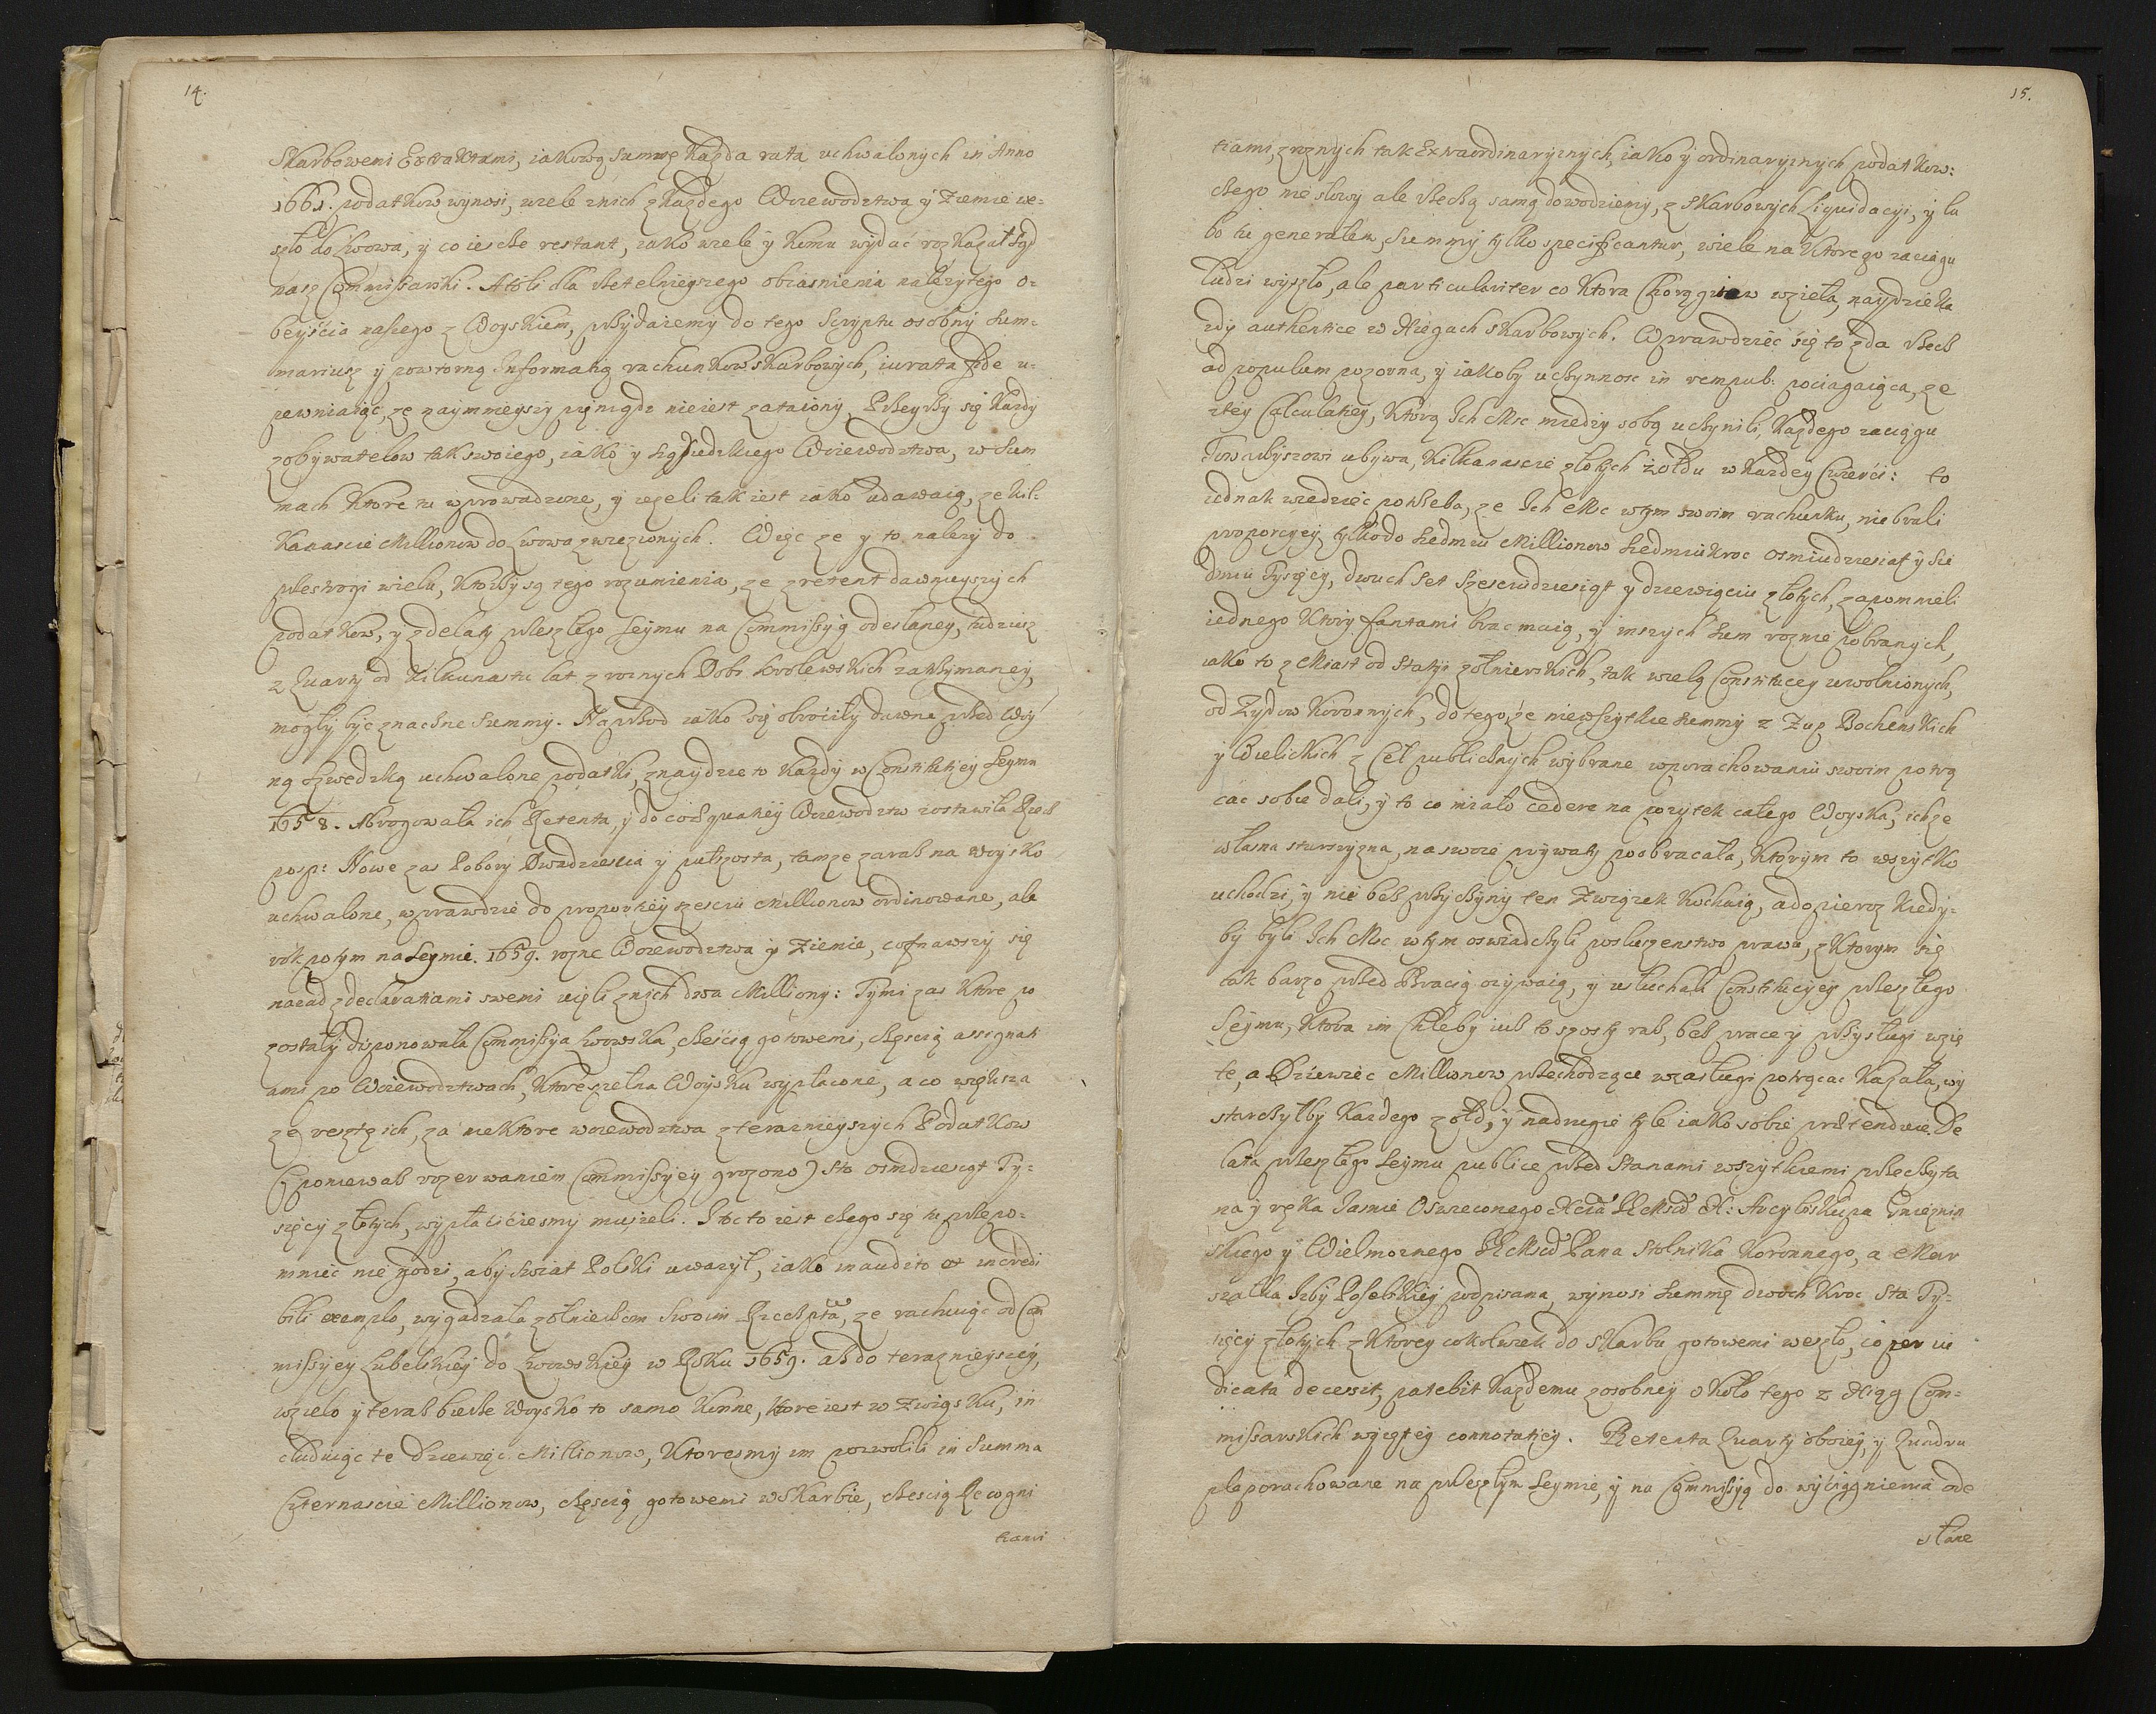 14.
Skarbowemi Extraktami, iakową summę Kazda rata uchwalonych in Anno
1661. podatkow wynosi, wiele znich zkazdego Woiewodztwa y Ziemie we-
szło do Lwowa, y co iescze restant, iako wiele y komu wydać rozkazał Sąd
nasz Commissarski. Atoli dla rzetelnieyszego obiasnienia nalezytego o-
beyścia naszego z Woyskiem, przydaiemy do tego Scryptu osobny Sum-
mariusz y powtorną Informatią rachunkow skarbowych, iurata fide u-
pewniaiąc, ze naymnieyszy pieniądz nieiest zataiony. Przeyrzy się kazdy
zobywatelow tak swoiego, iako y sąsiedzkiego Woiewodztwa, w Sum
mach ktore tu wprowadzone, y iezeli tak iest iako udawaią, ze kil-
kanascie Millionow do Lwowa zwiezionych. Więc ze y to nalezy do
przestrogi wielu, ktorzy są tego rozumienia, ze z retent dawnieyszych
podatkow, y z delaty przeszłego Seymu na Commissyą odesłaney, tudziesz
z kwarty od kilkunastu lat z roznych Dobr krolewskich zatrzymaney,
mogły byc znaczne Summy. Naprzod iako się obrociły dawne przed Woy
ną Szwedzką uchwalone podatki, znaydzie to kazdy w Constitutiey Seymu
1658. Abrogowała ich Retenta, y do coæquatiey Woiewodztw zostawiła Rzecz
posp: Nowe zas Pobory Dwadziescia y pułszosta, tamze zaraz na woysko
uchwalone, wprawdzie do proportiey szesciu Millionow ordinowane, ale
rok potym na Seymie 1659. rozne Woiewodztwa y Ziemie, cofnąwszy się
nazad z declaratiami swemi uięli znich dwa Milliony: Tymi zas ktore po
zostały disponowała Commissyia Lwowska, cześcią gotowemi, częścią assignati
ami po Woiewodztwach, ktore zełna Woysku wypłacone, a co większa
ze resztę ich, za niektore woiewodztwa z teraznieyszych Podatkow
(poniewaz rozerwaniem Commissyey grozono) sto osmdziesiąt Ty-
sięcy złotych, wypłacićiesmy musieli. Itoc to iest czego się tu przepo-
mniec nie godzi, aby swiat Polski uwazył, iako inaudito et incredi
bili exemplo, wygadzała zołnierzom swoim Rzeczpta, ze rachuiąc od Com
missyey Lubelskiey do Lwowskiey w Roku 1659. az do teraznieyszey,
wzieło y teraz bierze Woysko to samo konne, ktore iest w Związku, in
cluduiąc te dziewięć Millionow, ktoresmy im pozwolili in Summa
Czternascie Millionow, częscią gotowemi w Skarbie, cześcią Recogni
tiami
15.
tiami, z roznych tak Extraordinarynych, iako y ordinarynych podatkow:
czego nie słowy ale rzeczą samą dowodziemy, z skarbowych Liquidacyi, y lu
bo tu generalem Summy tylko specificantur, wiele na ktorego zaciągu
ludzi wyszło, ale particulariter co ktora Chorągiew wzieła, naydzie ka
zdy authentice w Xięgach skarbowych. Wprawdzieć się to zda rzecz
ad populum pozorna, y iakoby uczynnosc in rempub: pociągaiąca, ze
ztey Calculatiey, ktorą Ich Msc miedzy sobą uczynili, kazdego zaciągu
Towarzyszowi ubywa, kilkanascie złotych żołdu w kazdey Cwierci: to
iednak wiedziec potrzeba, ze Ich Msc wtym swoim rachunku, nie brali
proporcyey tylko do siedmiu Millionow siedmiukroc osmiudziesiat y sie
dmiu Tysięcy, dwuch set szesciudziesiąt y dziewięciu złotych, zapomnieli
iednego ktory fantami brac maią, y inszych Sum roznie pobranych,
iako to z Miast od statyi zołnierskich, tak wielą Constitucey uwolnionych,
od Zydow koronnych, do tego ze niewszytkie summy z Zup Bochenskich
y Wielickich z Ceł publicznych wybrane w porachowaniu swoim potrą
cac sobie dali, y to co miało cedere na pozytek całego Woyska, ichze
własna starszyzna, na swoie prywaty poobracała, ktorym to wszytko
uchodzi, y nie bez przyczyny ten Związek kochaią, adopieroz kiedy-
by byli Ich Msc wtym oswiadczyli posłuszenstwo prawu, z ktorym się
tak barzo przed Bracią ozywaią, y usłuchali Constitucyey przeszłego
Seymu, ktora im Chleby iusz to szosty raz, bez pracey y przysługi wzię
te, a Dziewiec Millionow przechodzące w zasługi potrącac kazała, wy
starczyłby kazdego zołd, y nadrugie tyle iako sobie prætenduie. De
lata przeszłego Seymu publice przed Stanami wszytkiemi przeczyta
na y ręką Iasnie Oswieconego Xcia Msci X: Arcybiskupa Gnieznin
skiego y Wielmoznego Pana Stolnika Koronnego, a Mar
szałka Izby Poselskiey podpisana, wynosi Summę dwoch kroc sta Ty-
sięcy złotych z ktorey cokolwiek do skarbu gotowemi weszło, co per iu
dicata decessit, patebit kazdemu zosobney około tego z Xiąg Com-
missarskich wyiętey connotatiey. Retenta kwarty oboiey, y Quadru
pla porachowane na przeszłym Seymie, y na Commissyą do wyciągnienia ode
słane